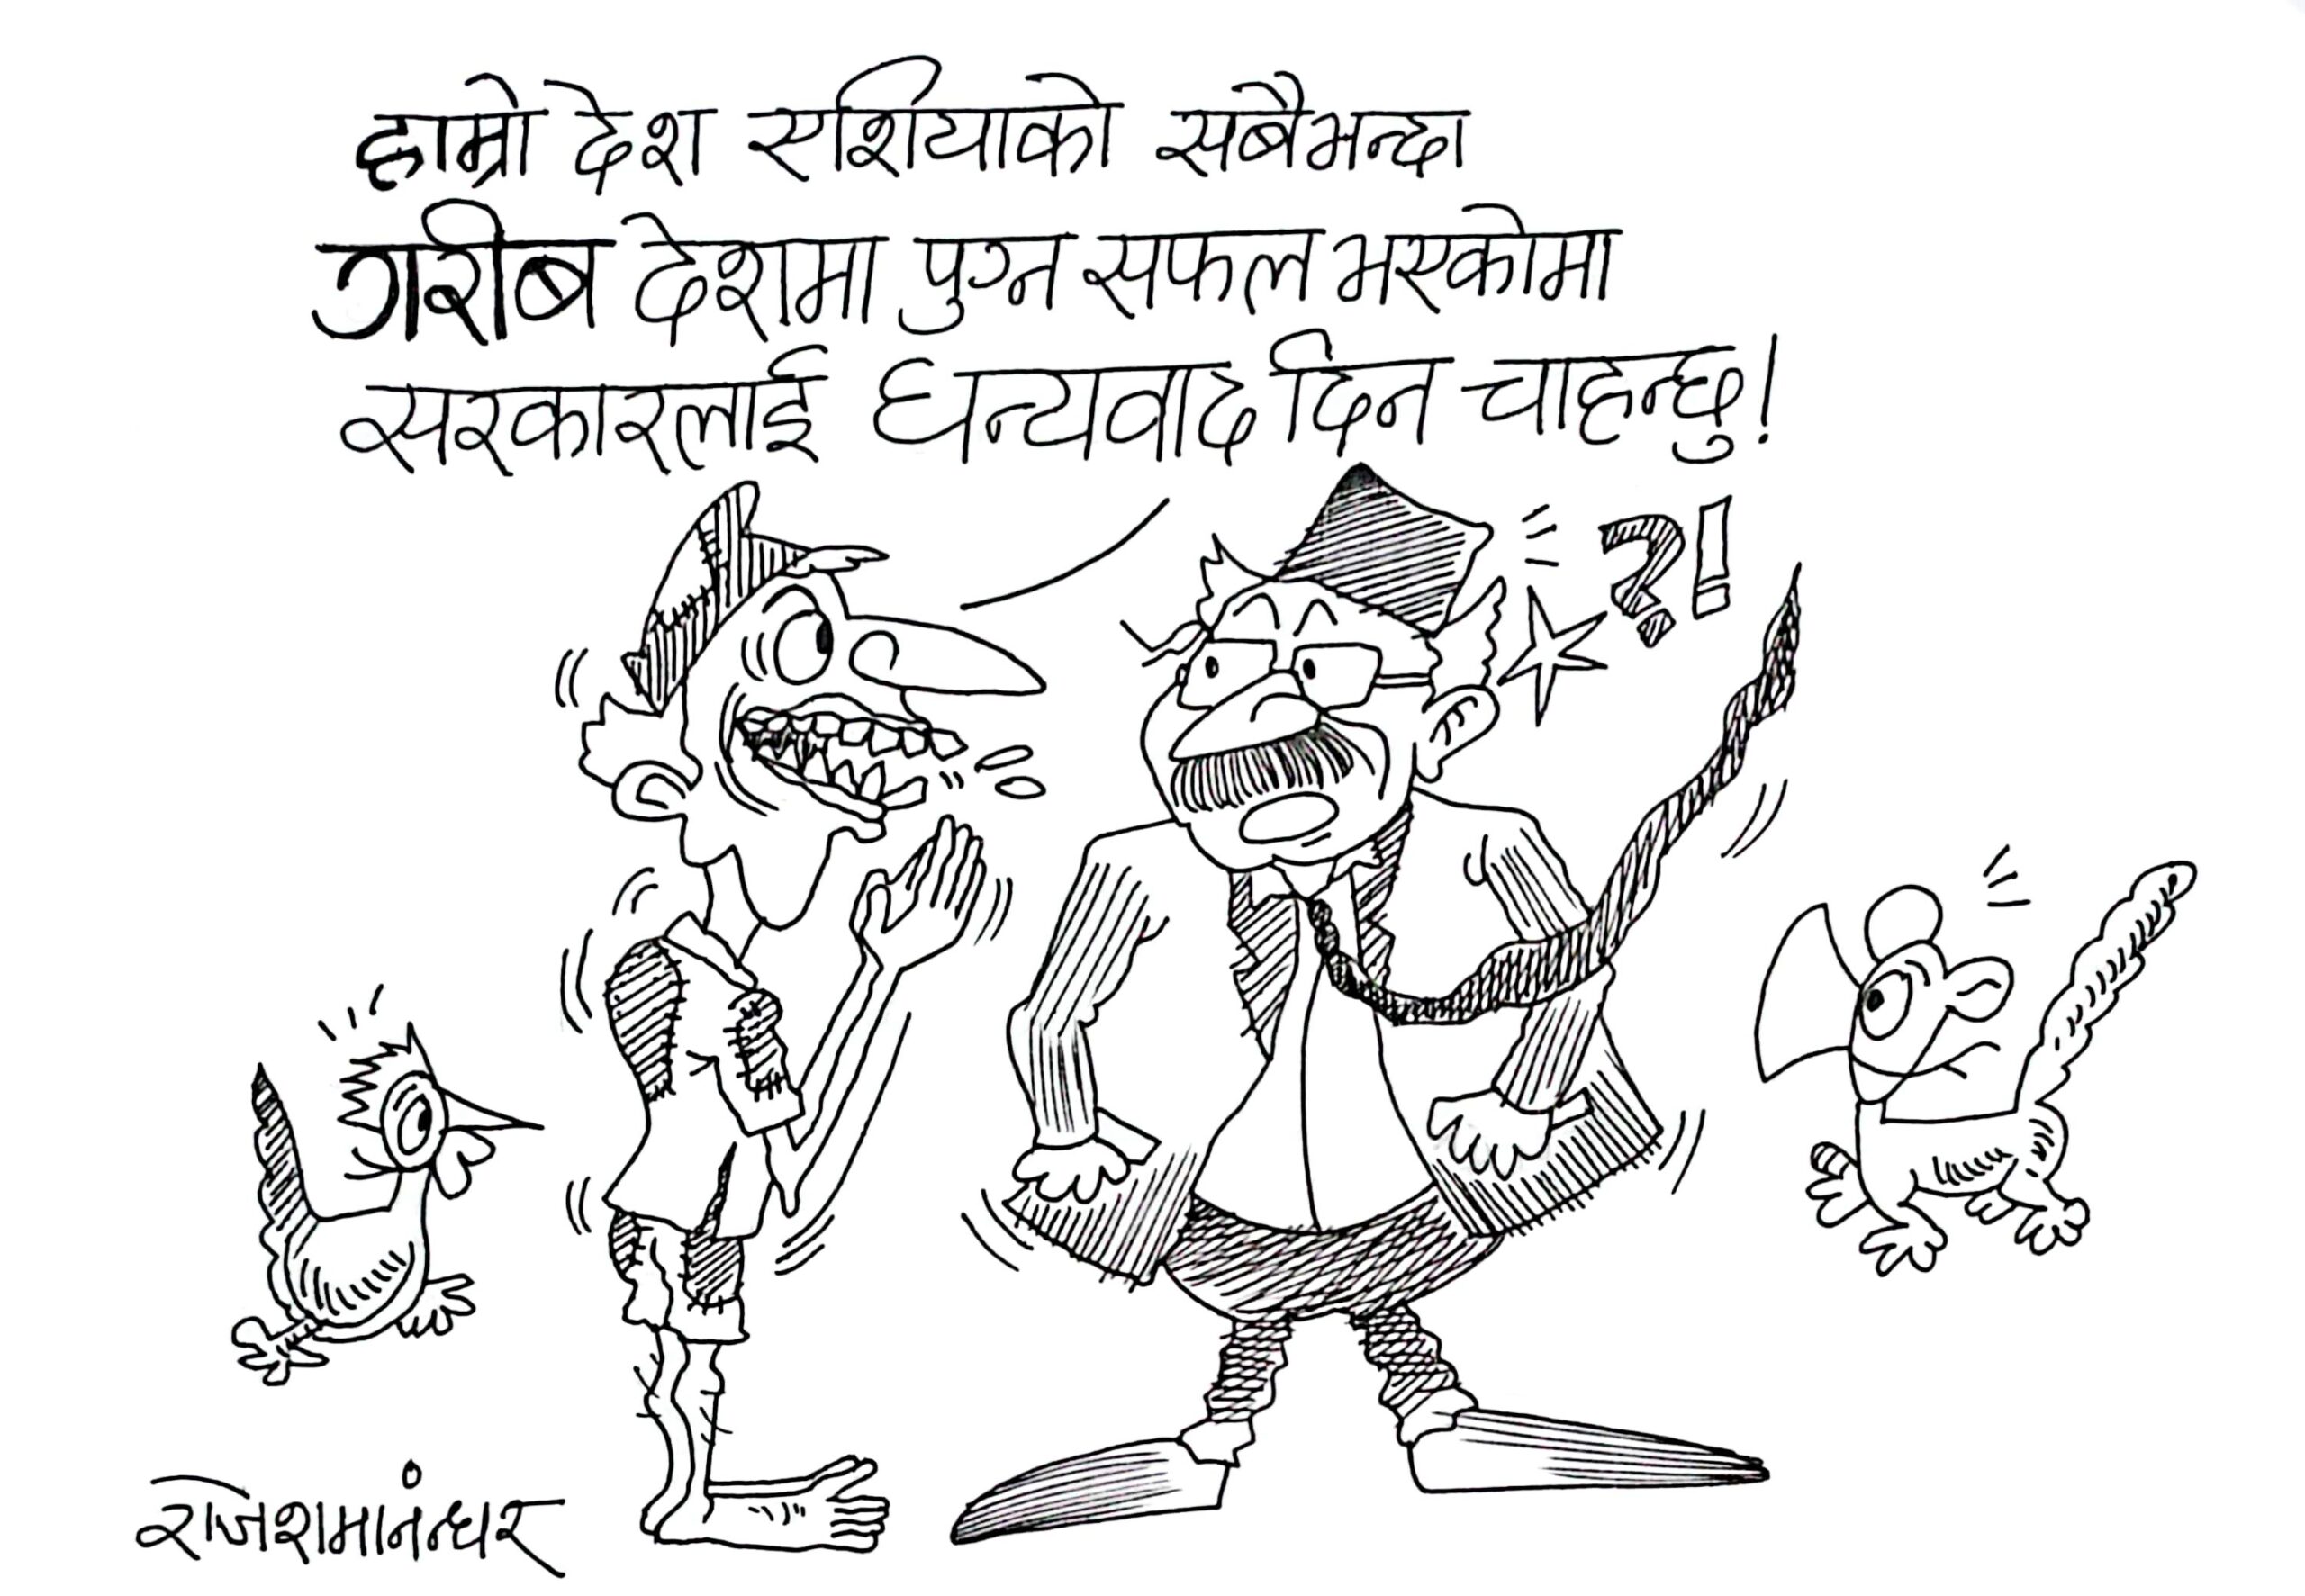 हाम्रो देश एशियाको सबैभन्दा
गरीब देशमा पुग्न सफल भएकोमा
सरकारलाई धन्यवाद दिन चाहन्छु!
?!
राजेशमानंन्धर